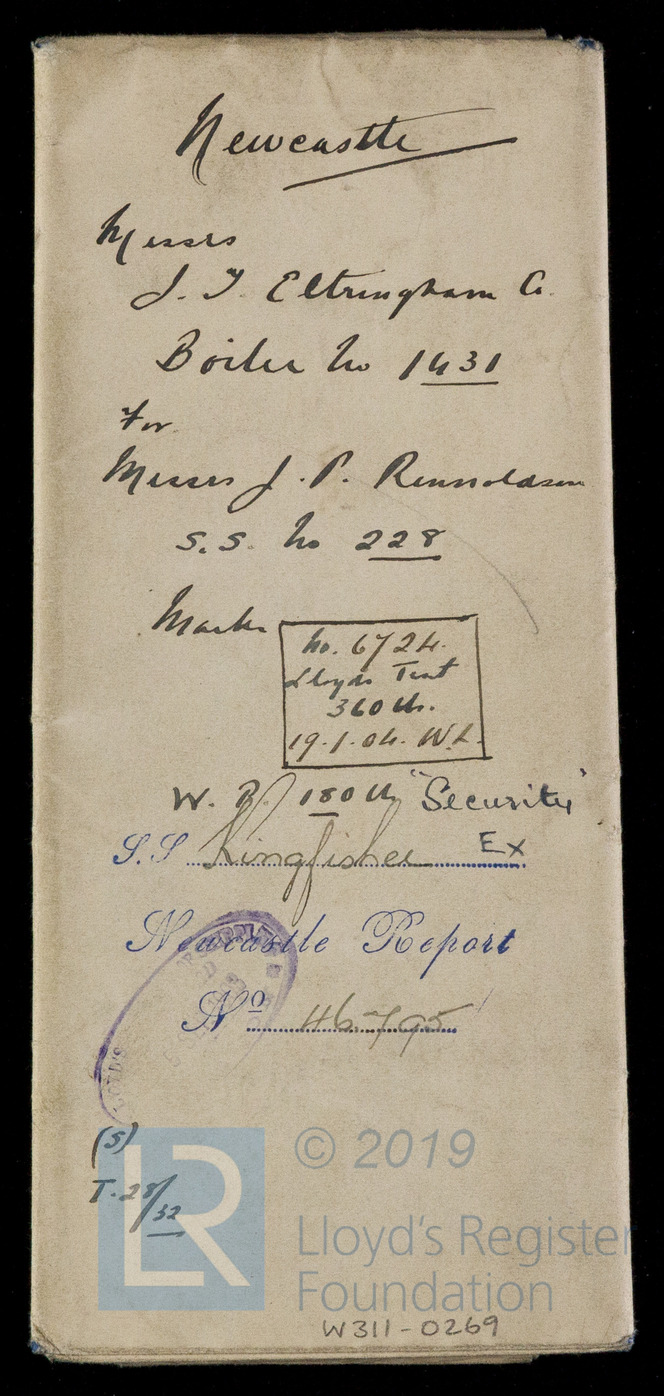 Newcastle
Messrs
J. T. Eltringham Co.
Boiler No 1431
For
Messrs J. P. Rennoldson
S.S. No 228
Marks
No. 6724.
Lloyds Test
360 lb.
19.1.04. W.L.
W. P. 180 lb "Security"
S.S Kingfisher Ex
Newcastle Report
No 46795
(S)
T. 28/32
LR
© 2019
Lloyd's Register
Foundation
W311-0269